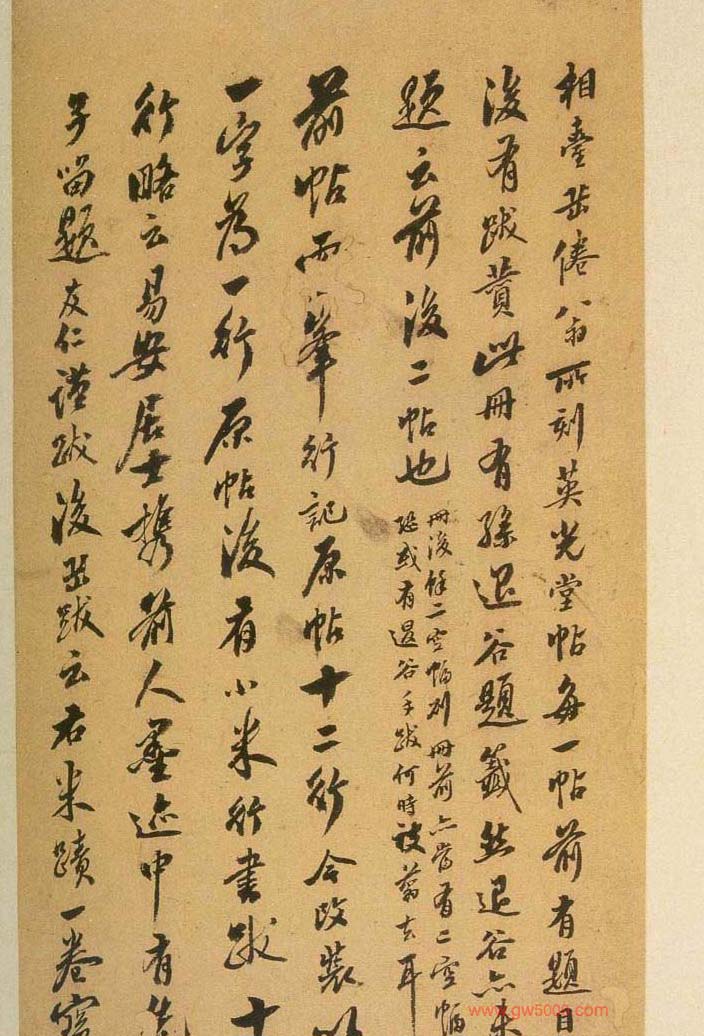 相臺岳倦翁所刻英光堂帖每一帖前有題目
後有跋贊此冊有孫退谷題籤然退谷亦未
題云前後二帖也
冊後餘二空幅則冊前亦當有二空幅
恐或有退谷手跋何時被剪去耳
前帖兩峯行記原帖十二行今改裝以
一字為一行原帖後有小米行書跋十
行略云易安居士携前人墨迹中有先
子留題友仁謹跋後岳跋云右米蹟一卷寶
www.gw5000.com